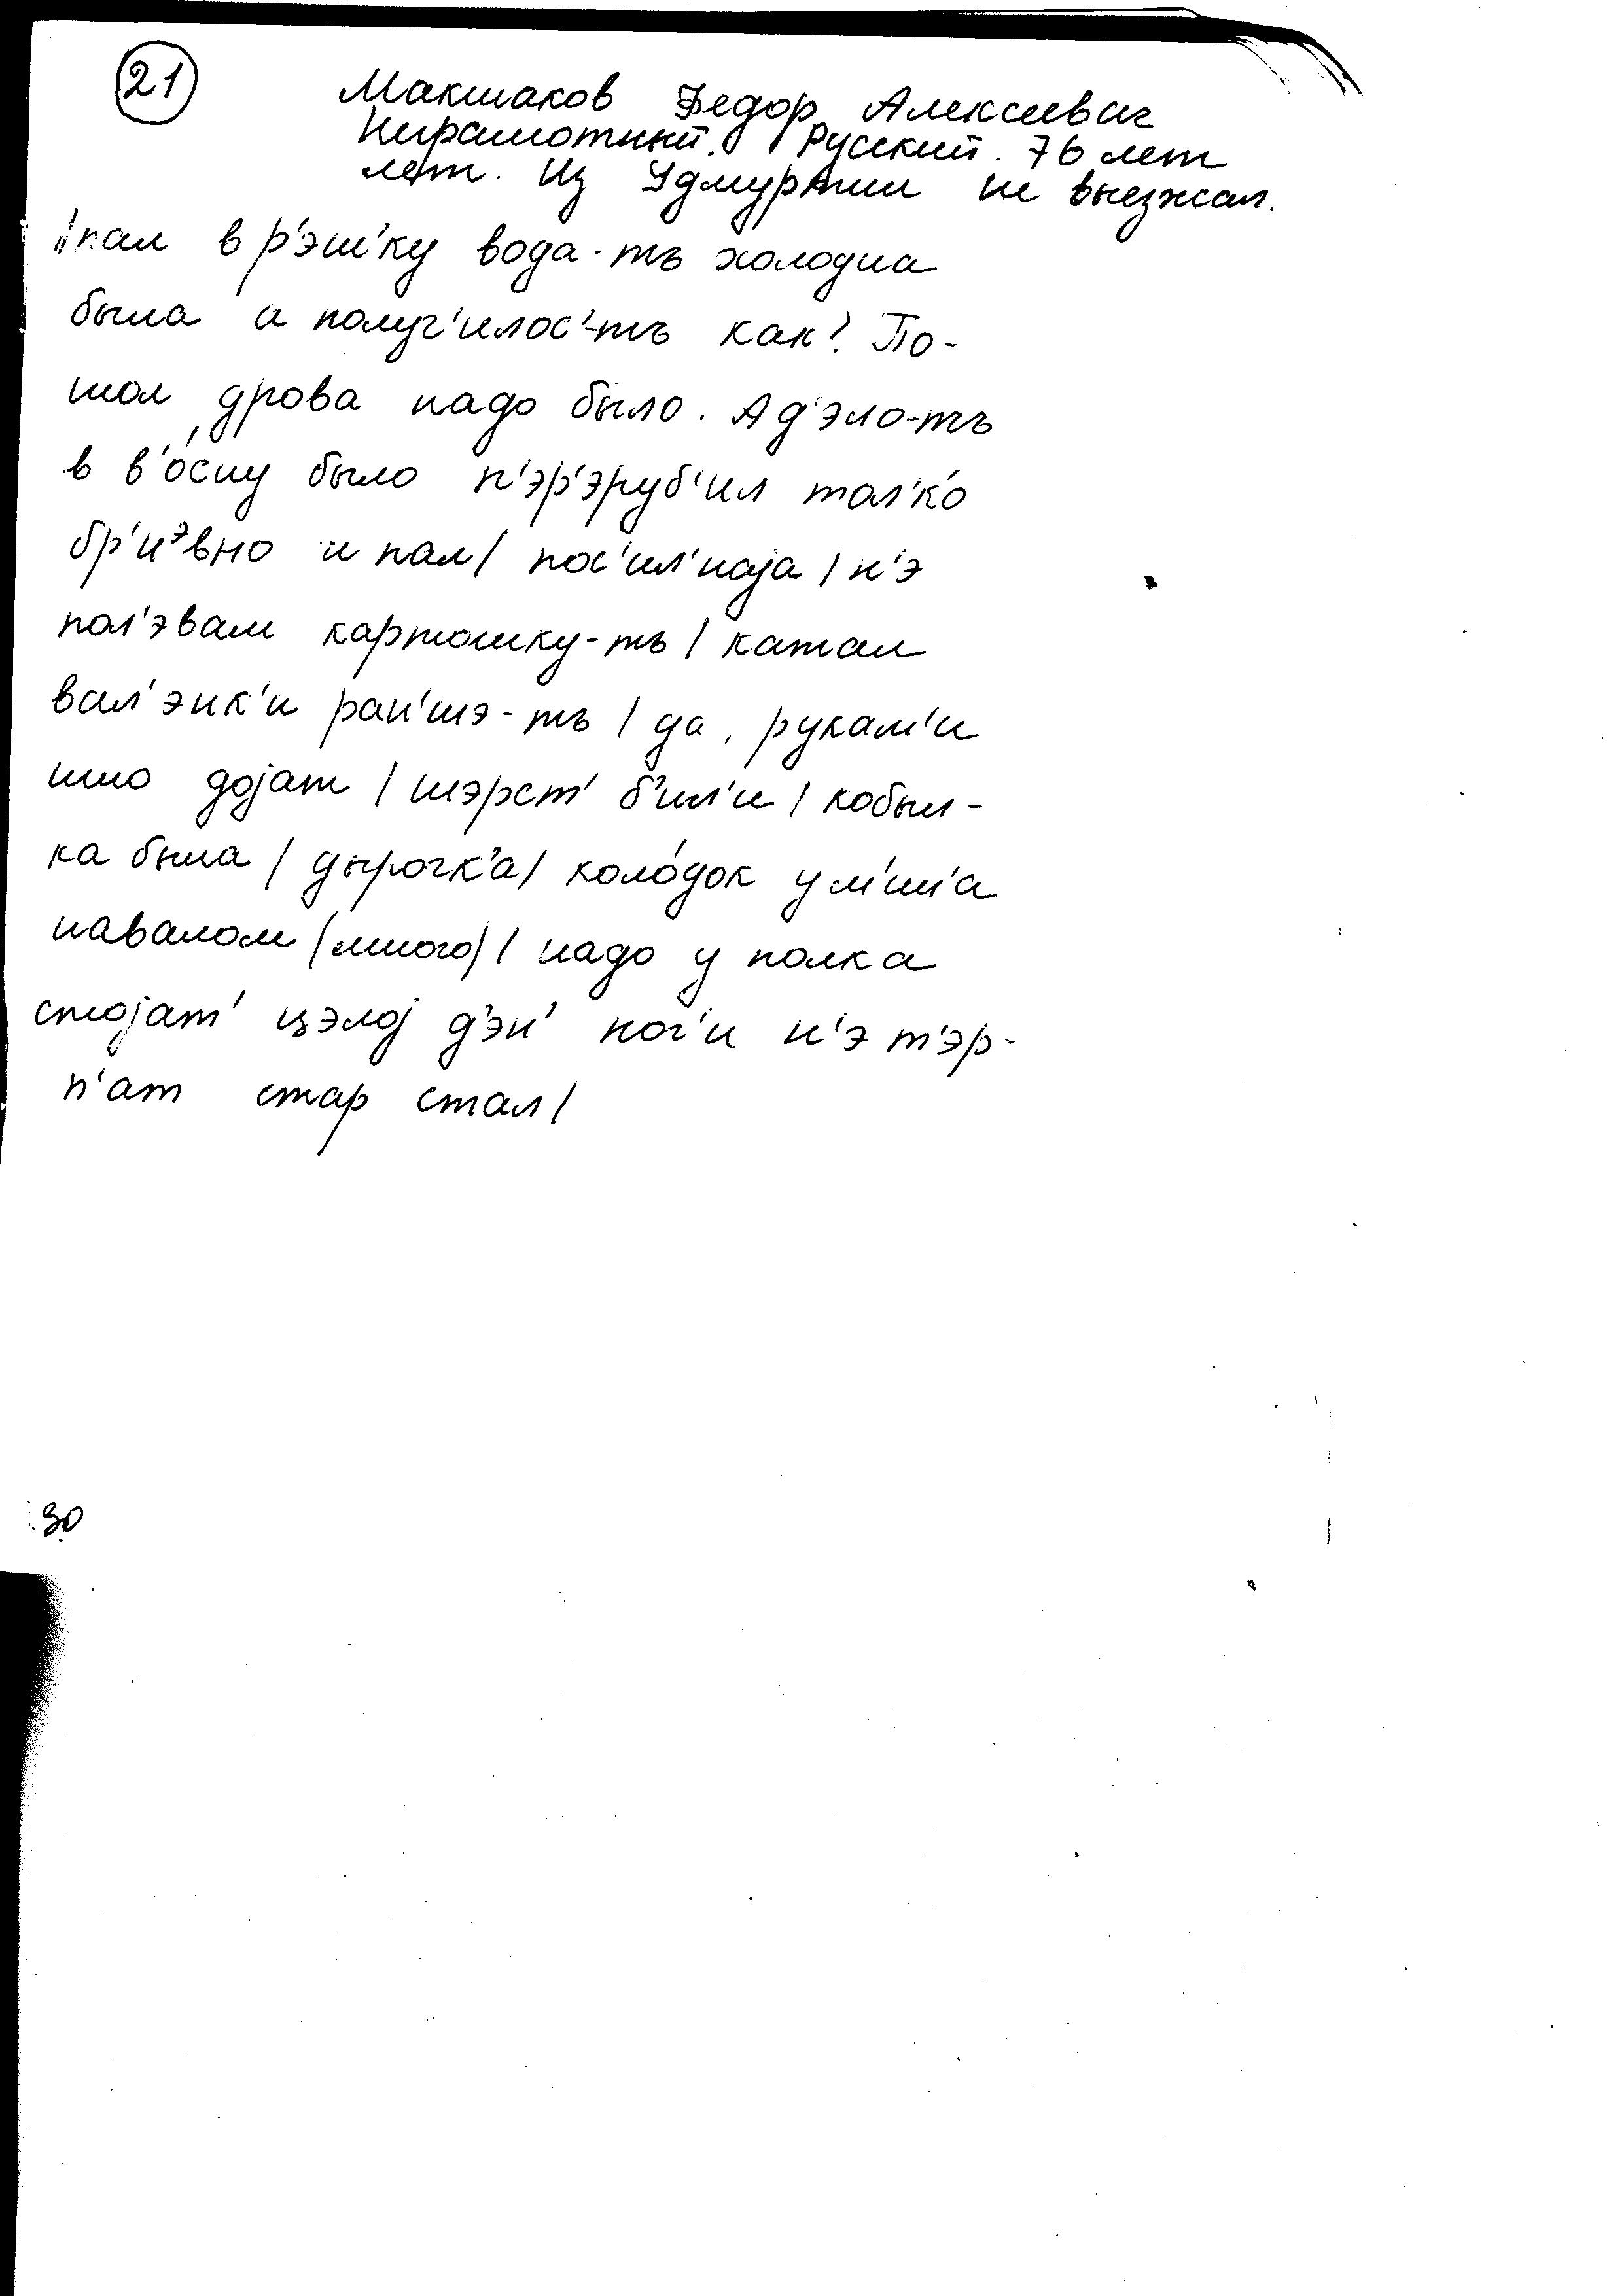 21
Макшаков Федор Алексеевич
Неграмотный. Русский. 76 лет
лет. Из Удмуртии не выезжал.
пал в р'эш'ку вода-тъ холодна
была а получ'илос'-тъ как? По-
шол дрова надо было. А д'эло-тъ
в в'осну было п'эр'эруб'ил тол'ко
бр'иэвно и пал/ пос'ил'наја / н'э
пол'эвам картошку-тъ / катал
вал'энк'и ран'шэ-тъ / да, рукам'и
што дојат / шэрст' б'ил'и / кобыл-
ка была / дырочк'а / коло́док у м'ин'а
навалом (много) / надо у полка
стојат' цэлој д'эн' ног'и н'э т'эр-
п'ат стар стал /
30